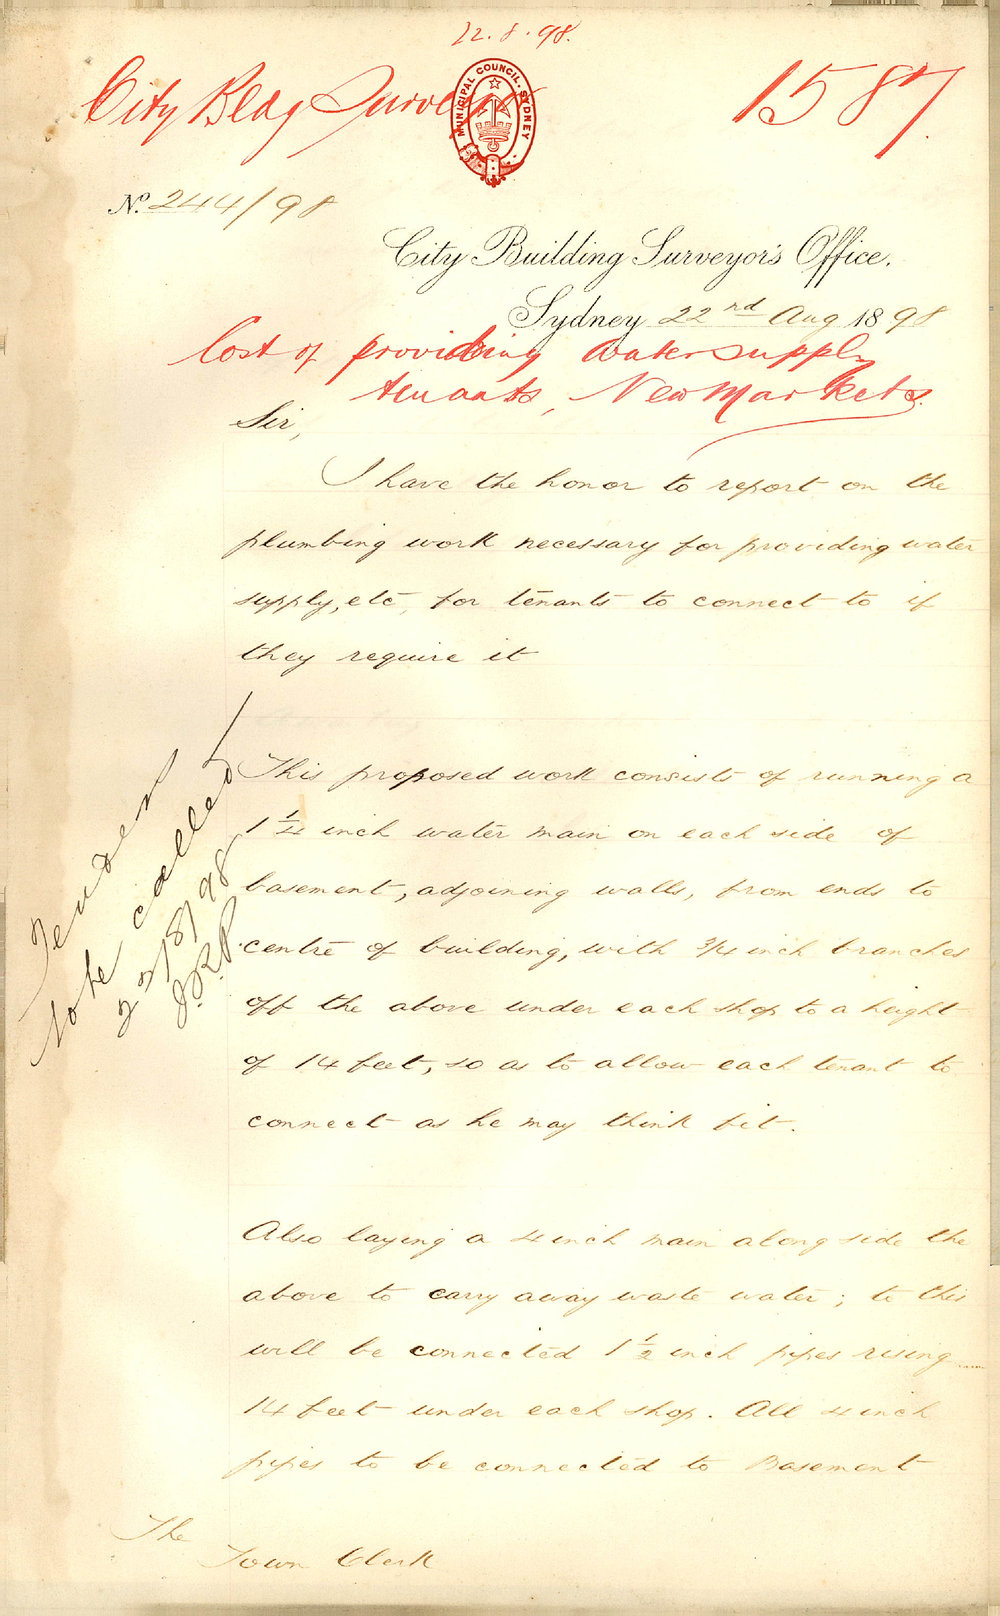 22.8.98.
City Bldg Surveyor
1587.
MUNICIPAL COUNCIL. SYDNEY
No. 244/98
City Building Surveyor's Office.
Sydney 22nd Aug 1898
Cost of providing water supply
tenants, New Markets.
Sir,
I have the honor to report on the
plumbing work necessary for providing water
supply, etc, for tenants to connect to if
they require it
This proposed work consists of running a
1 1/4 inch water main on each side of
basement, adjoining walls, from ends to
centre of building, with 3/4 inch branches
off the above under each shop to a height
of 14 feet, so as to allow each tenant to
connect as he may think fit.
Tenders
to be called
22/8/98
J.R.P.
Also laying a 4 inch main along side the
above to carry away waste water; to this
will be connected 1 1/2 inch pipes rising
14 feet under each shop. All 4 inch
pipes to be connected to Basement
The
Town Clerk